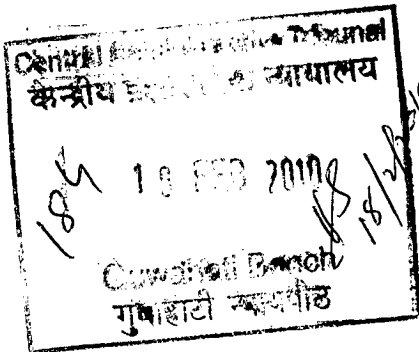 Central Administrative Tribunal
केन्द्रीय न्यायालय
184 FEB 2010 18/2/
Guwahati Bench
गुवाहाटी न्यायपीठ